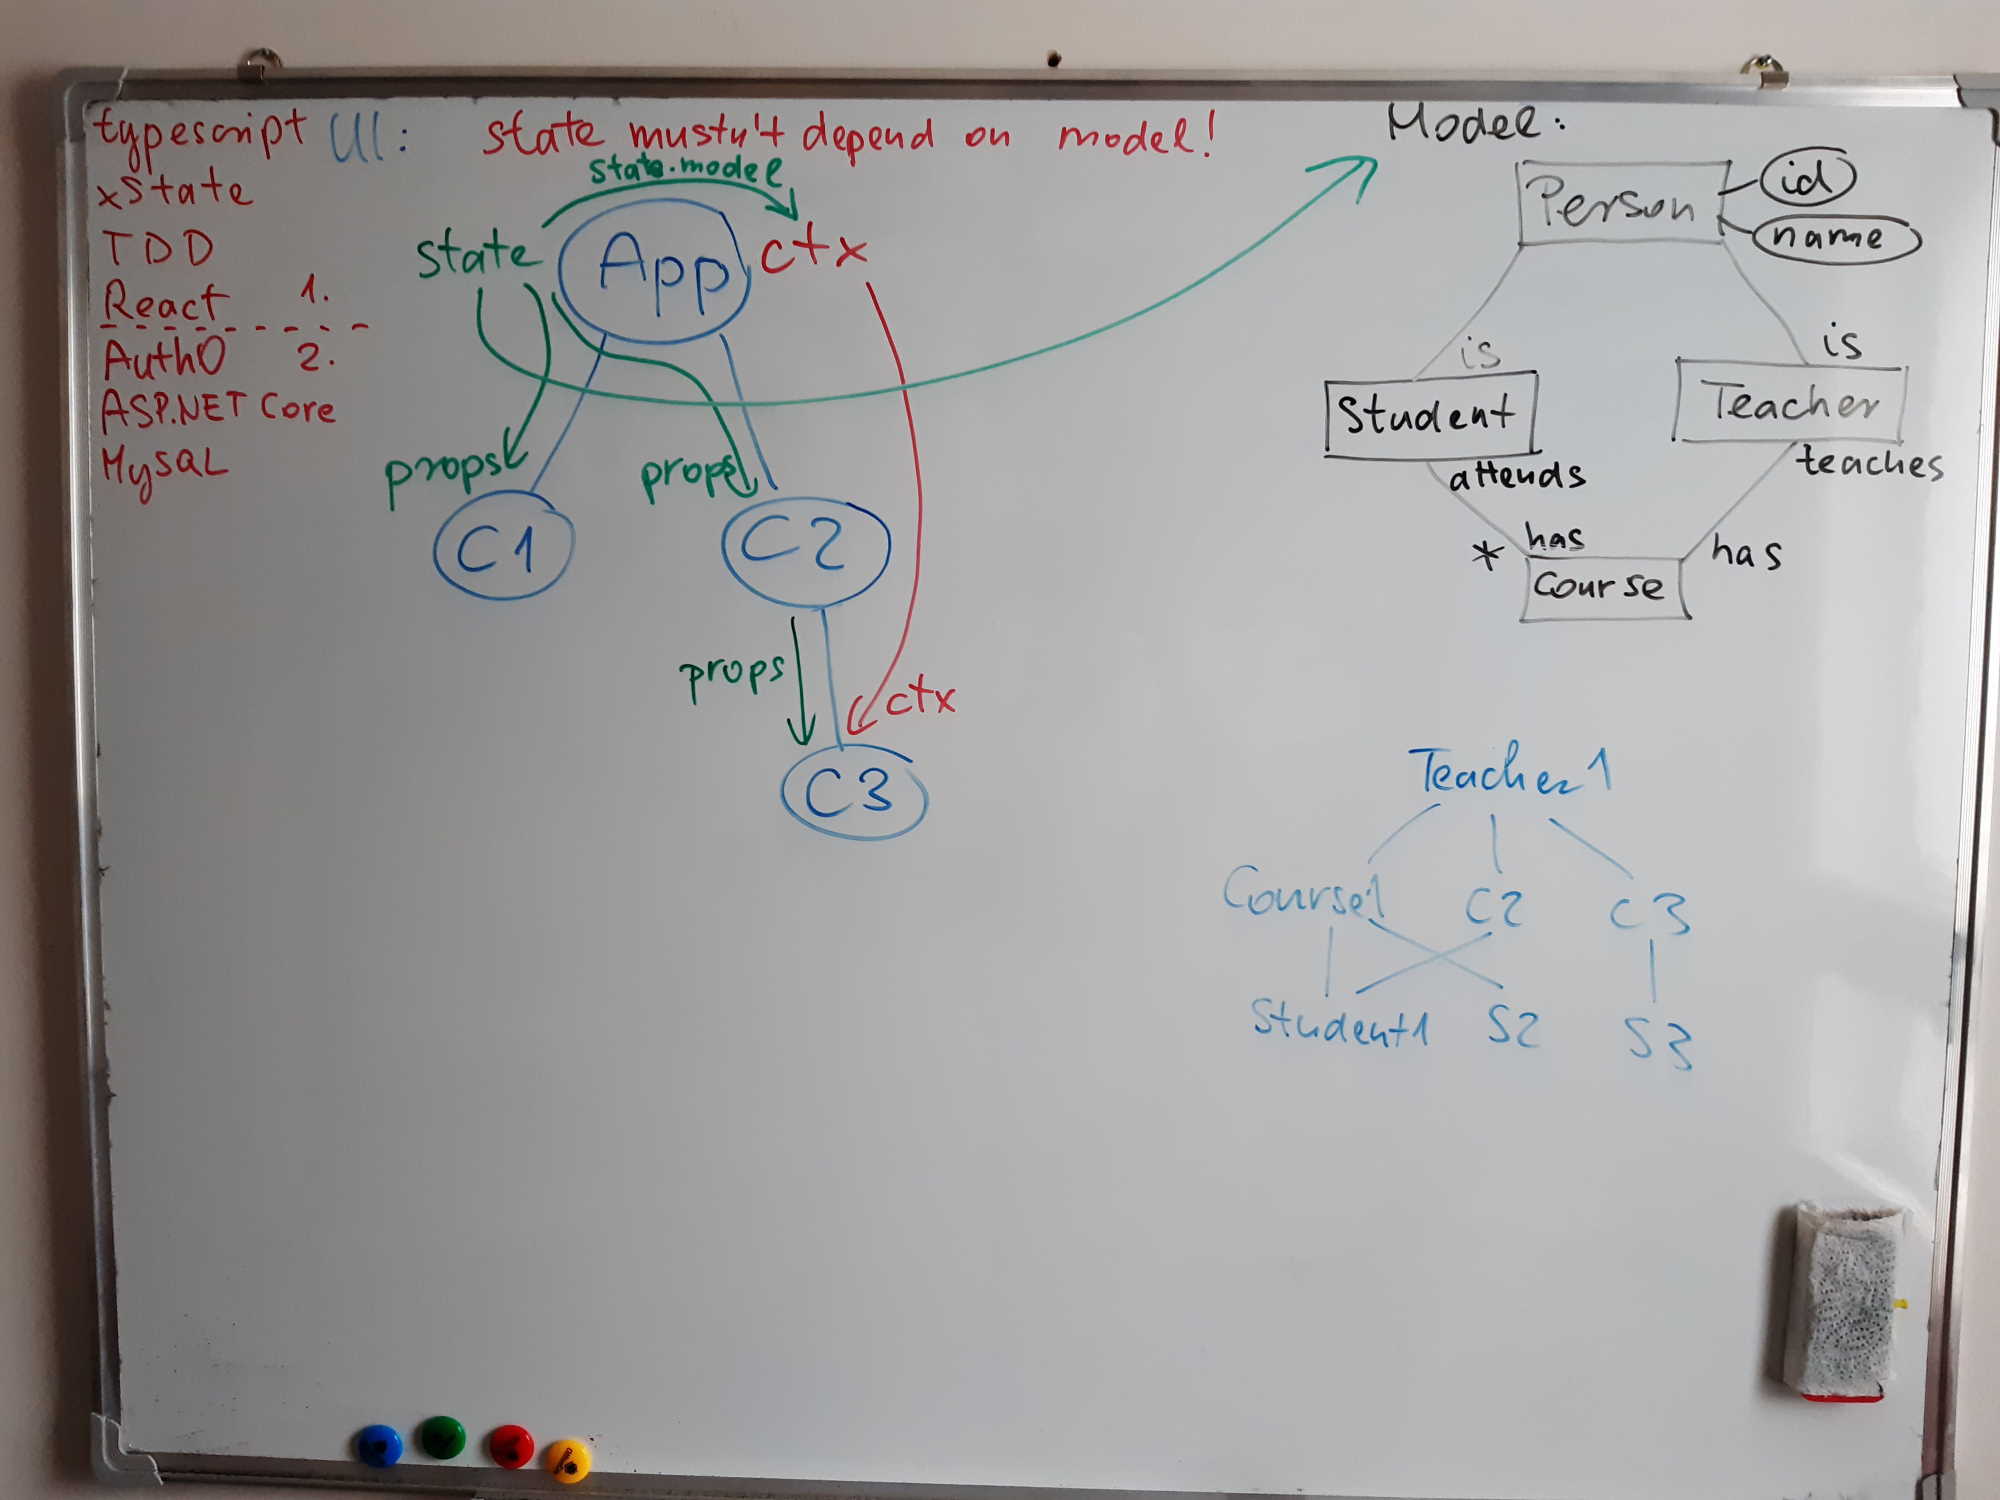 typescript
xState
TDD
React 1.
Auth0 2.
ASP.NET Core
MySQL
UI: state mustn't depend on model!
state.model
state App ctx
props props
C1 C2
props ctx
C3
Model:
Person id
name
is is
Student Teacher
attends teaches
* has has
Course
Teacher1
Course1 C2 C3
Student1 S2 S3